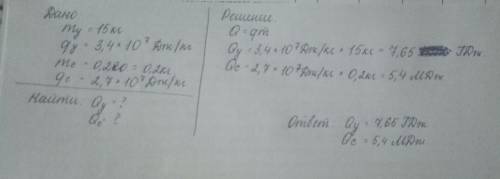 Дано
mу = 15кг
qу = 3,4 * 10⁷ Дж/кг
mс = 0,200 = 0,2кг
qс = 2,7 * 10⁷ Дж/кг
Найти: Qу = ?
Qс = ?
Решение.
Q = qm
Qу = 3,4 * 10⁷ Дж/кг * 15кг = 7,65 ГДж
Qс = 2,7 * 10⁷ Дж/кг * 0,2кг = 5,4 МДж
Ответ: Qу = 7,65 ГДж
Qс = 5,4 МДж